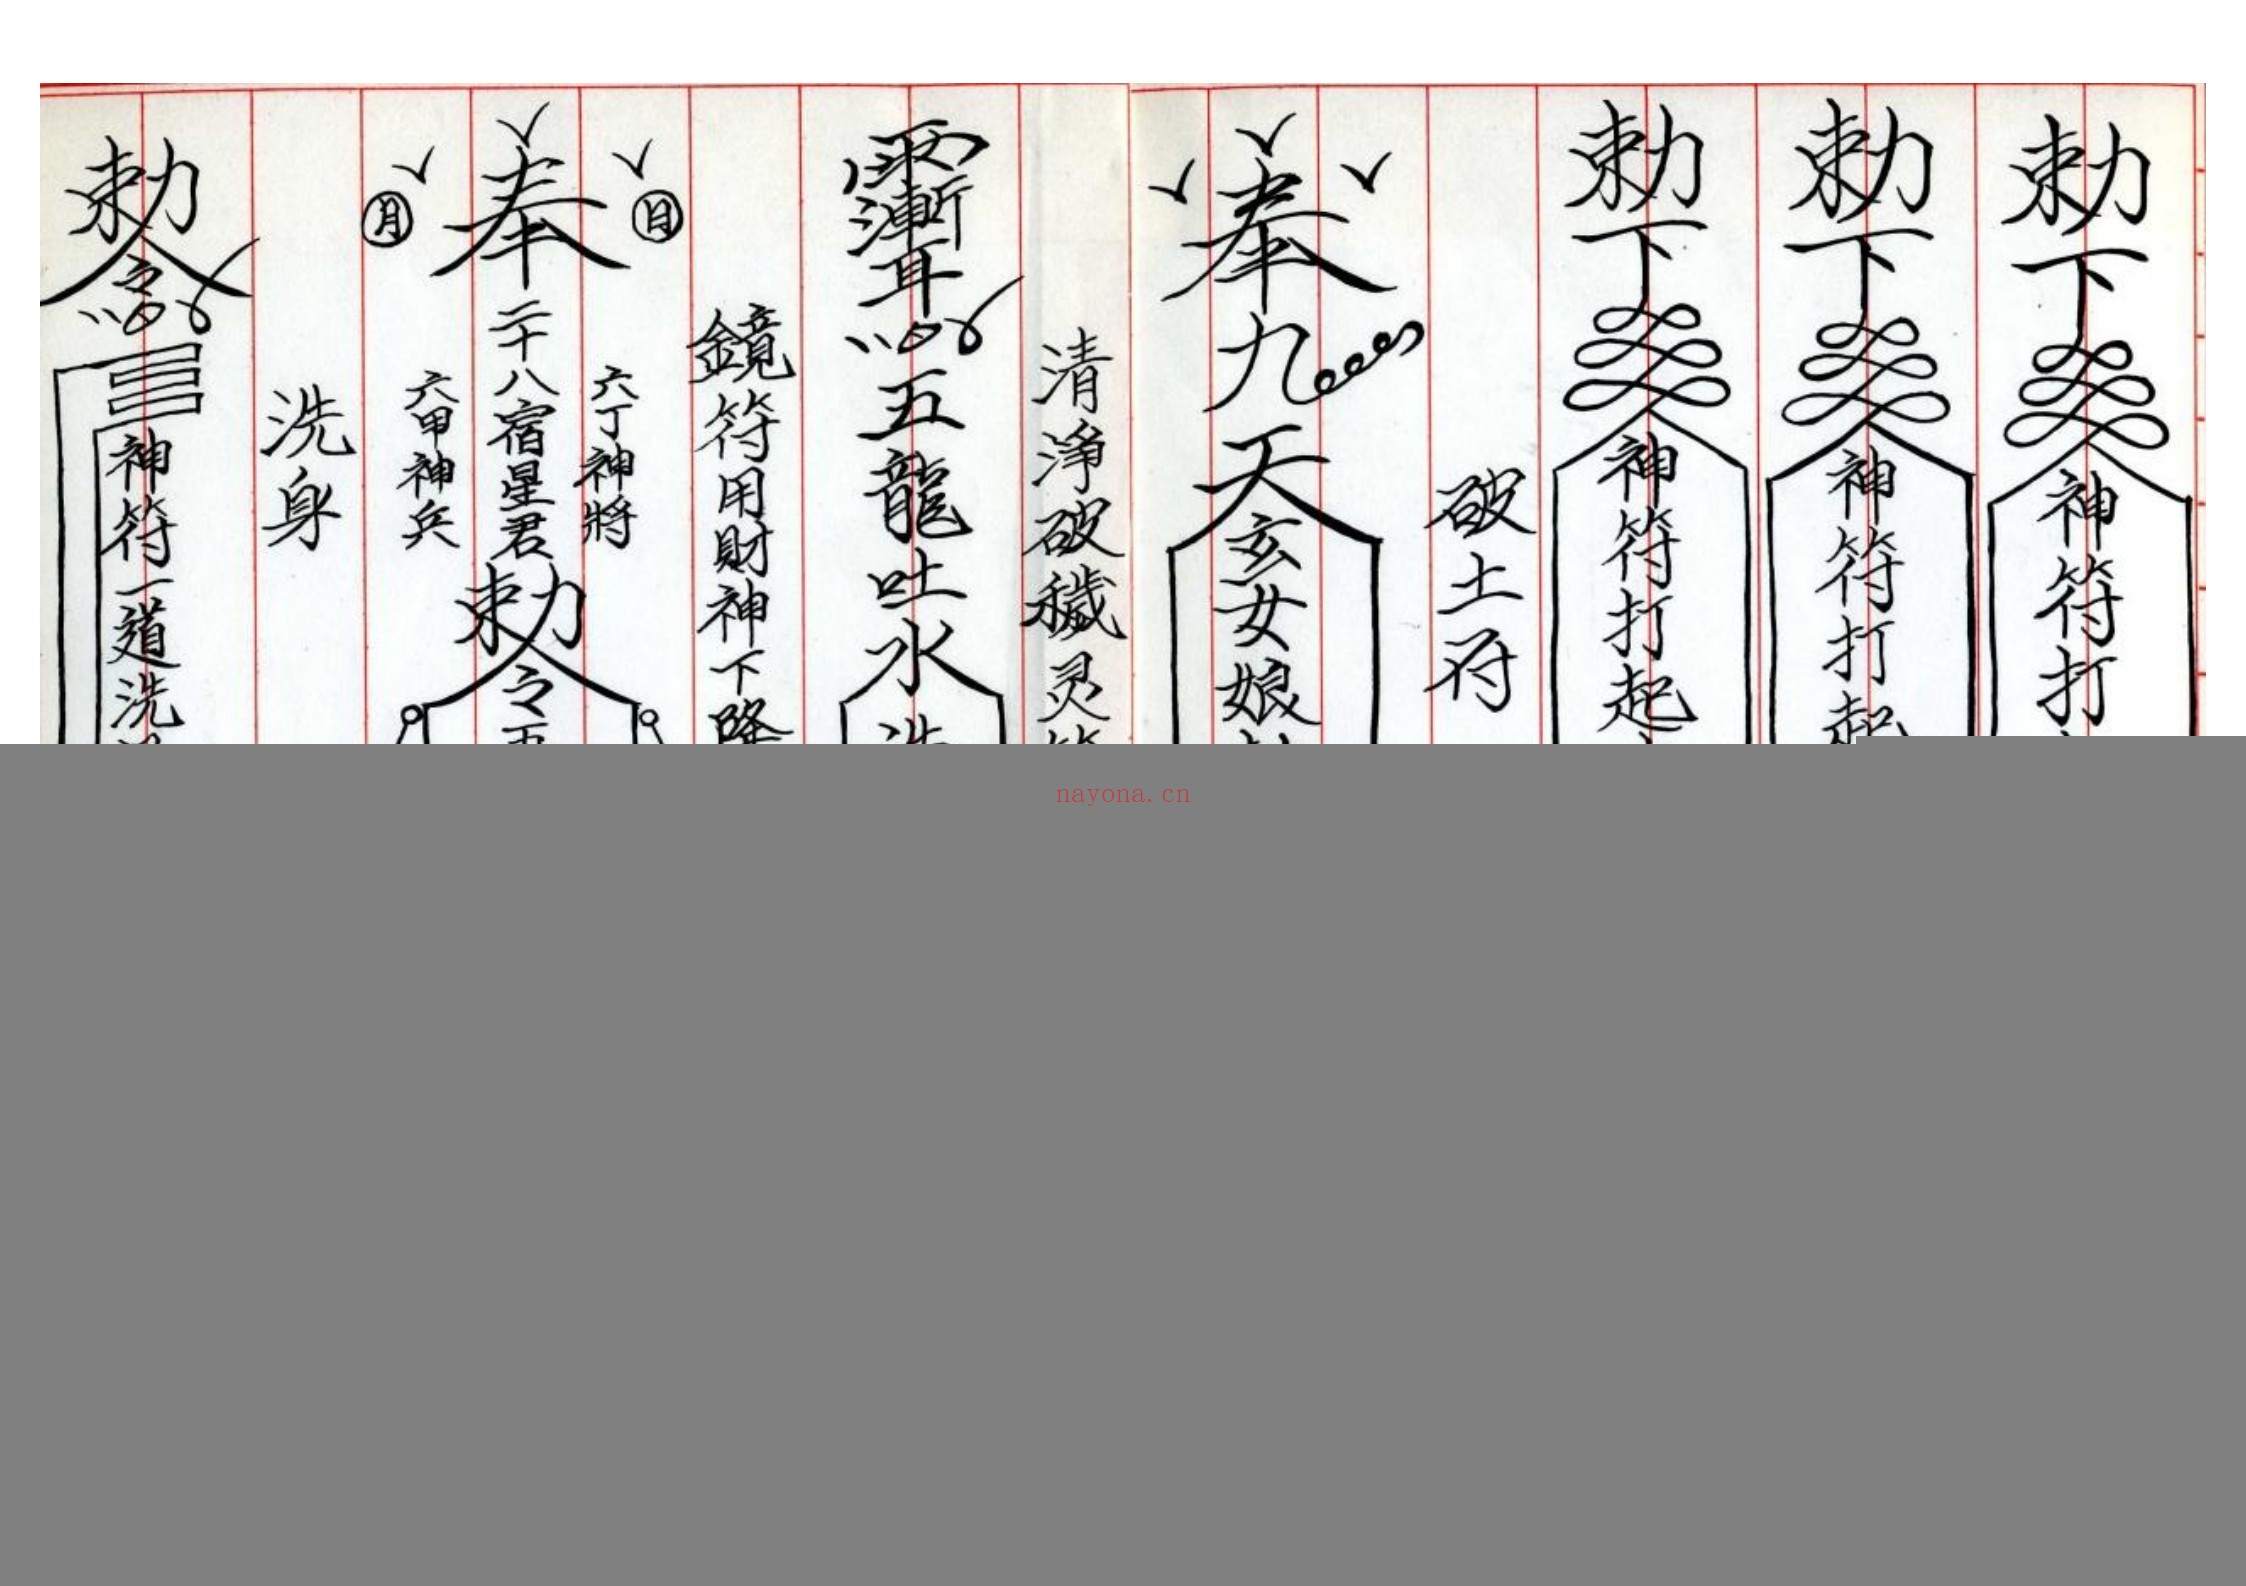 勅下神符打
勅下神符打起
勅下神符打起
破土符
奉九天玄女娘
清淨破穢灵
五龍吐水
鏡符用財神下降
日
六丁神將
奉二十八宿星君勅令
月
六甲神兵
洗身
勅令
神符一道洗
nayona.cn